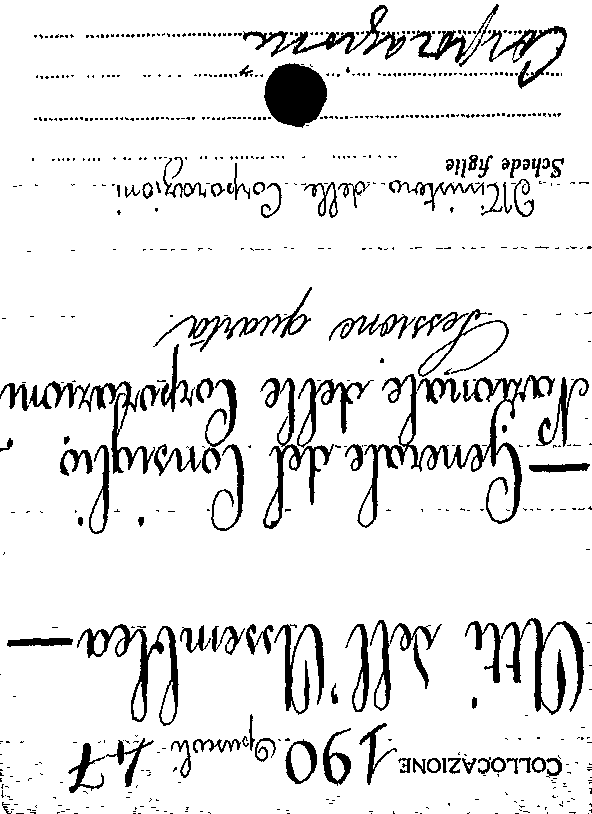 COLLOCAZIONE 190 Opuscoli 47
Atti dell'Assemblea —
— Generale del Consiglio
Nazionale delle Corporazioni
Sessione quarta
Ministero delle Corporazioni
Schede figlie
"
Corporazioni